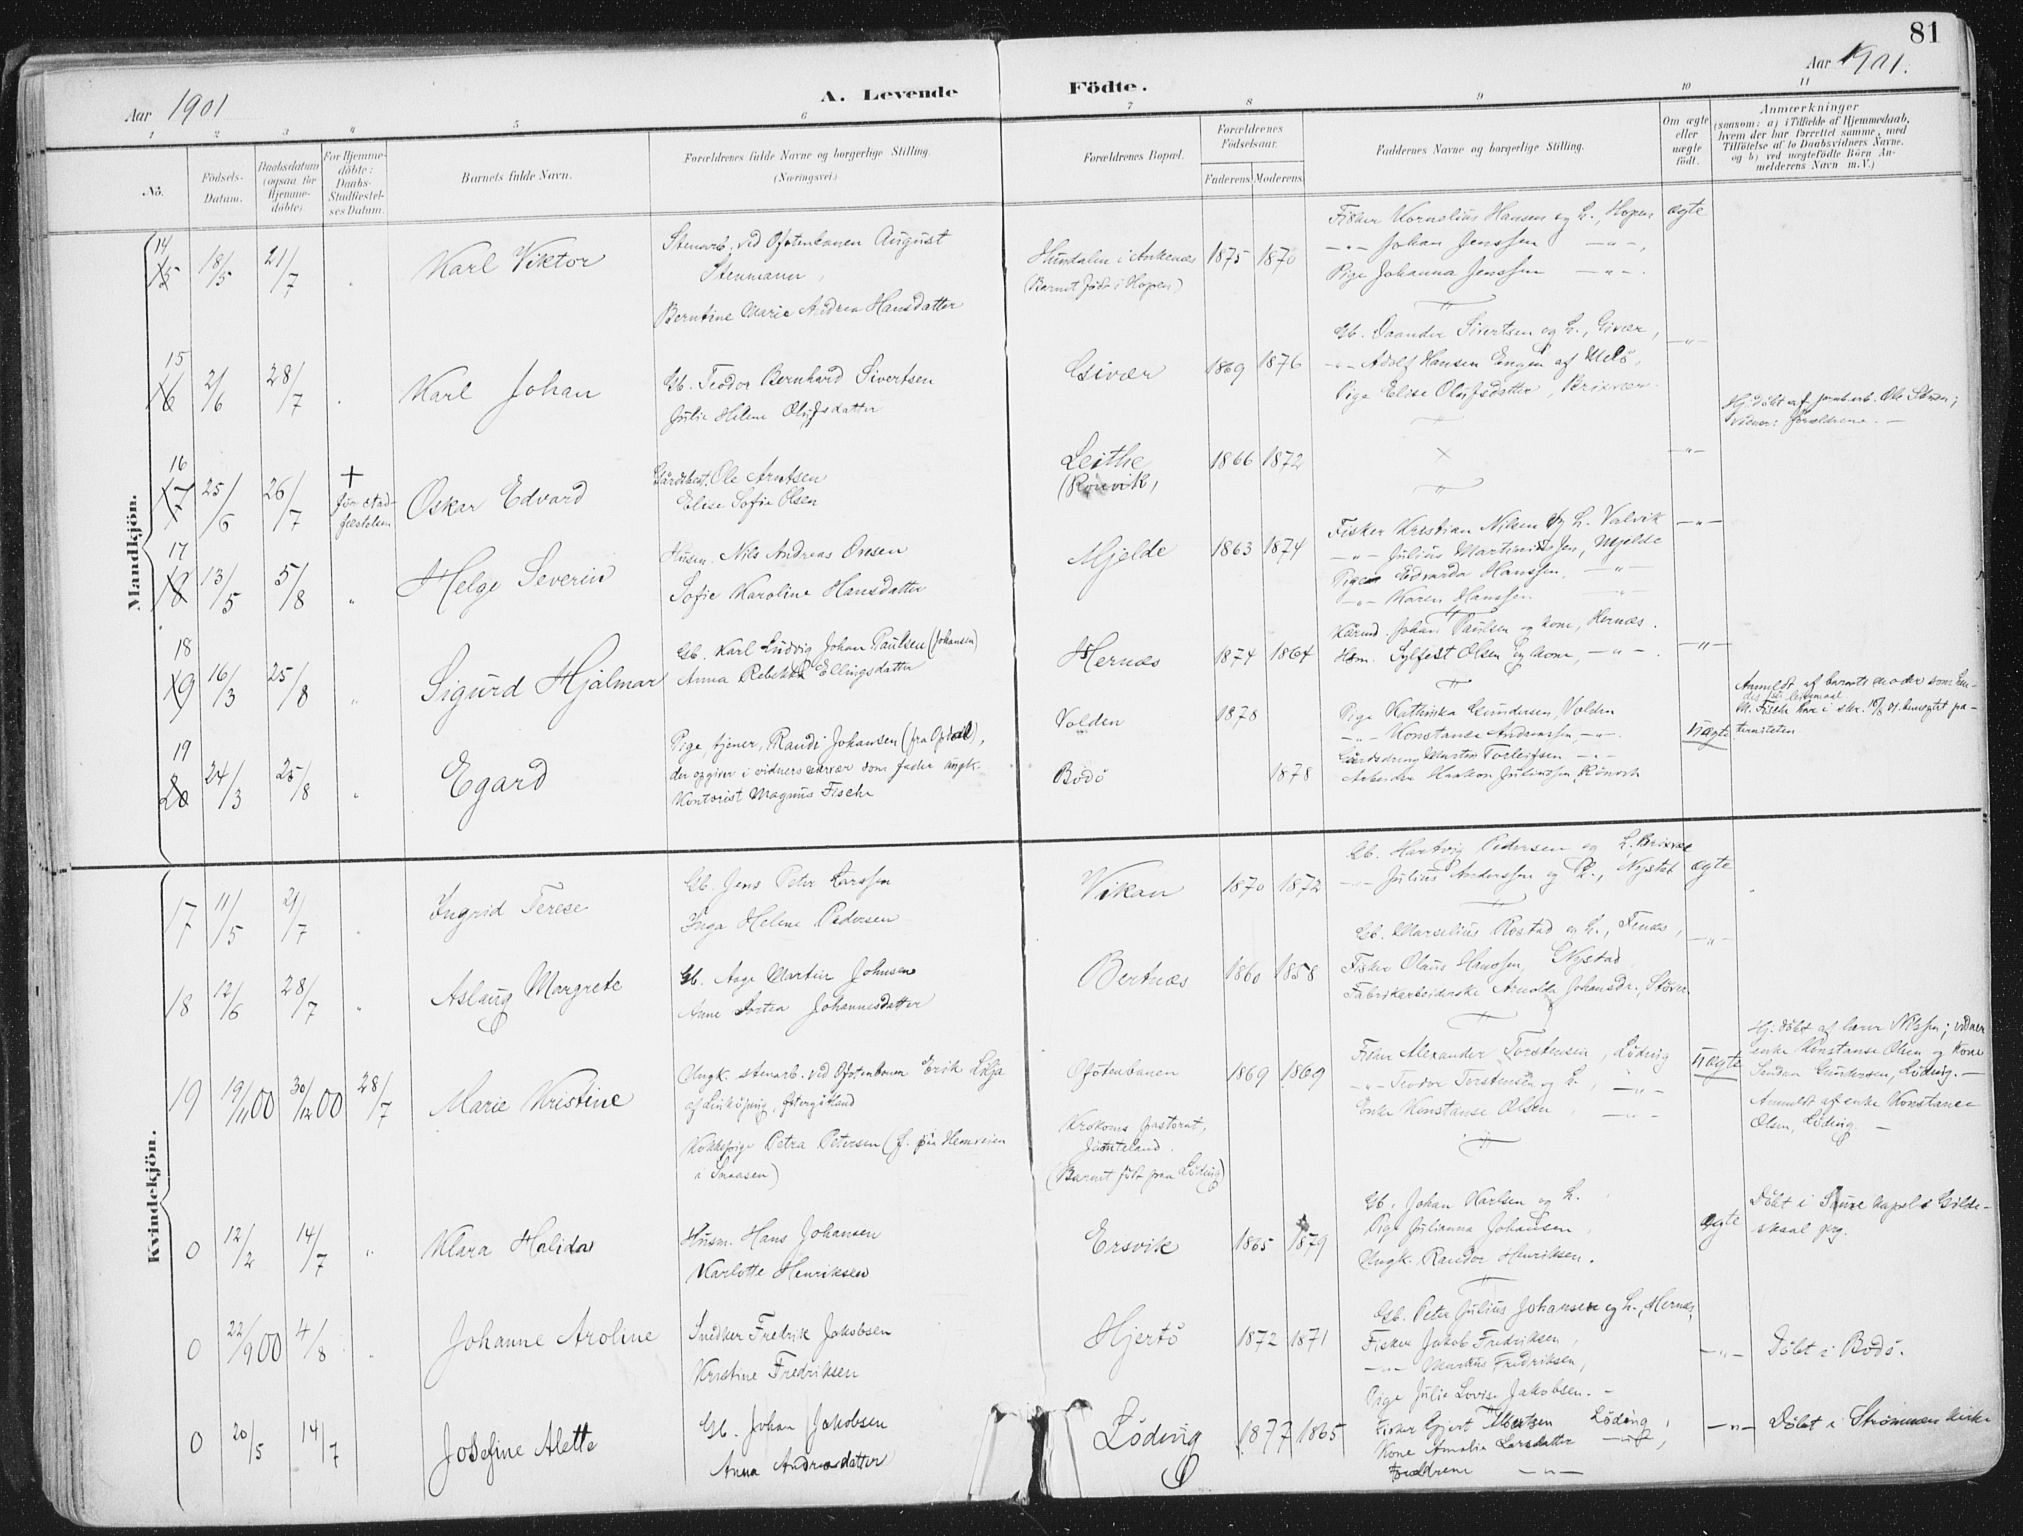 81
Aar 1901
A. Levende Födte.
Aar 1901.
1 2 3 4 5 6 7 8 9 10 11
No.
Födsels-Datum.
Daabsdatum (ogsaa for Hjemmedöbte).
For Hjemmedöbte: Daabs-Stadfæstelses Datum.
Barnets fulde Navn.
Forældrenes fulde Navne og borgerlige Stilling. (Næringsvei.)
Forældrenes Bopæl.
Forældrenes Födselsaar.
Faderens. Moderens.
Faddernes Navne og borgerlige Stilling.
Om ægte eller uægte födt.
Anmærkninger
(saasom: a) i Tilfælde af Hjemmedaab,
hvem der har forrettet samme, med
Tilföielse af to Daabsvidners Navne,
og b) ved uægtefödte Börn An-
melderens Navn m. V.)
Mandkjön.
14 15 18/5 21/7 " Karl Viktor
Stenarb. ved Ofotenbanen August
Stenmann,
Berntine Marie Andrea Hansdatter
Hundalen i Ankenæs
(Barnet født i Hopen)
1875 1870
Fisker Kornelius Hansen og h., Hopen
-"- Johan Jenssen -"-,
Pige Johanna Jenssen -"-.
ægte
15 16 2/6 28/7 " Karl Johan
Gb. Teodor Bernhard Sivertsen
Julie Helene Olufsdatter
Givær
1869 1876
Gb. Daander Sivertsen og h., Givær,
-"- Adolf Hansen Engen af Melö,
Pige Elise Olufsdatter, Brixvær.
-"-
16 17 25/6 26/7 + før stad-
fæstelsen
Oskar Edvard
Gårdbest. Ole Arntsen
Elise Sofie Olsen
Leithe
(Rönvik)
1866 1872
×
-"-
Hj.döbt af jernb.arb. Ole Steen;
vidner: forældrene. -
17 18 13/5 5/8 " Helge Severin
Husm. Nils Andreas Ovesen
Sofie Karoline Hansdatter
Mjelde
1863 1874
Fisker Kristian Nilsen og h. Valvik
-"- Julius Martinussen, Mjelde
Pige Edvarda Hanssen, -"-
-"- Karen Hanssen -"-
-"-
18 19 16/3 25/8 " Sigurd Hjalmar
Gb. Karl Ludvig Johan Paulsen (Johansen)
Anna Rebekka Ellingsdatter
Hernæs
1874 1864
Kårmd. Johan Paulsen og kone, Hernæs.
Hsm. Sylfest Olsen og kone, -"-.
-"-
19 20 24/3 25/8 " Egard
Pige, tjener, Randi Johansen (fra Opdal),
der opgiver i vidners nærvær som fader ungk.
Kontorist Magnus Fische
Volden
Bodö
1878
1878
Pige Kathinka Gundersen, Volden
-"- Konstanse Andreassen, -"-
Gårdsdreng Morten Torleifsen -"-
Arbeider Haakon Juliussen, Rönvik
uægte
Anmeldt af barnets moder som
M. Fische have i skr. 15/8 01. benegtet pa-
terniteten
Kvindekjön.
17 11/5 21/7 " Ingrid Terese
Gb. Jens Peter Larssen
Inga Helene Pedersen
Vikan
1870 1872
Gb. Hartvig Pedersen og h. Brixvær
-"- Julius Anderssen og h., Nystad
ægte
18 12/6 28/7 " Aslaug Margrete
Gb. Aage Martin Johnsen
Anne Dortea Johannesdatter
Bertnæs
1860 1858
Gb. Marselius Röstad og h., Finæs,
Fisker Olaus Hanssen, Nystad,
Fabrikarbeiderske Arnolda Johansdr., Stöver.
-"-
19 19/11 00 30/12 00 28/7 Marie Kristine
Ungk. stenarb. ved Ofotenbanen Erik Lilja
af Linköping, Østergötland
Kokkepige Petra Petersen (f. på Hemveien
i Snaasen)
Ofotenbanen
Krokoms pastorat,
Jämteland.
(Barnet födt paa Löding)
1869 1869
Fisker Alexander Torstensen, Löding
-"- Teodor Torstensen og h., -"-
Enke Konstanse Olsen, -"-
uægte
Hj. döbt af lærer Nilssen; vidner
enke Konstanse Olsen og Kone
Sandra Gundersen, Löding. -
Anmeldt af enke Konstanse
Olsen, Löding. -
0 12/2 14/7 " Klara Halida
Husm. Hans Johansen
Karlotte Henriksen
Ersvik
1865 1879
Gb. Johan Karlsen og h.
Pige Julianna Johansen,
Ungk. Randor Henriksen.
ægte
Döbt i Saura kapel i Gilde-
skaal pg.
0 22/9 00 4/8 " Johanne Aroline
Snedker Fredrik Jakobsen
Kristine Fredriksen
Hjertö
1872 1871
Gb. Peter Julius Johansen og h., Hernæs,
Fisker Jakob Fredriksen,
-"- Markus Fredriksen,
Pige Julie Lovise Jakobsen. -
-"-
Döbt i Bodö.
0 20/5 14/7 Josefine Alette
Gb. Johan Jakobsen
Anna Andreasdatter
Löding
1877 1865
Fisker Ejert Albertsen Löding,
Kone Amalia Larsdatter -"-,
Forældrene -"-
-"-
Döbt i Strömmen kirke